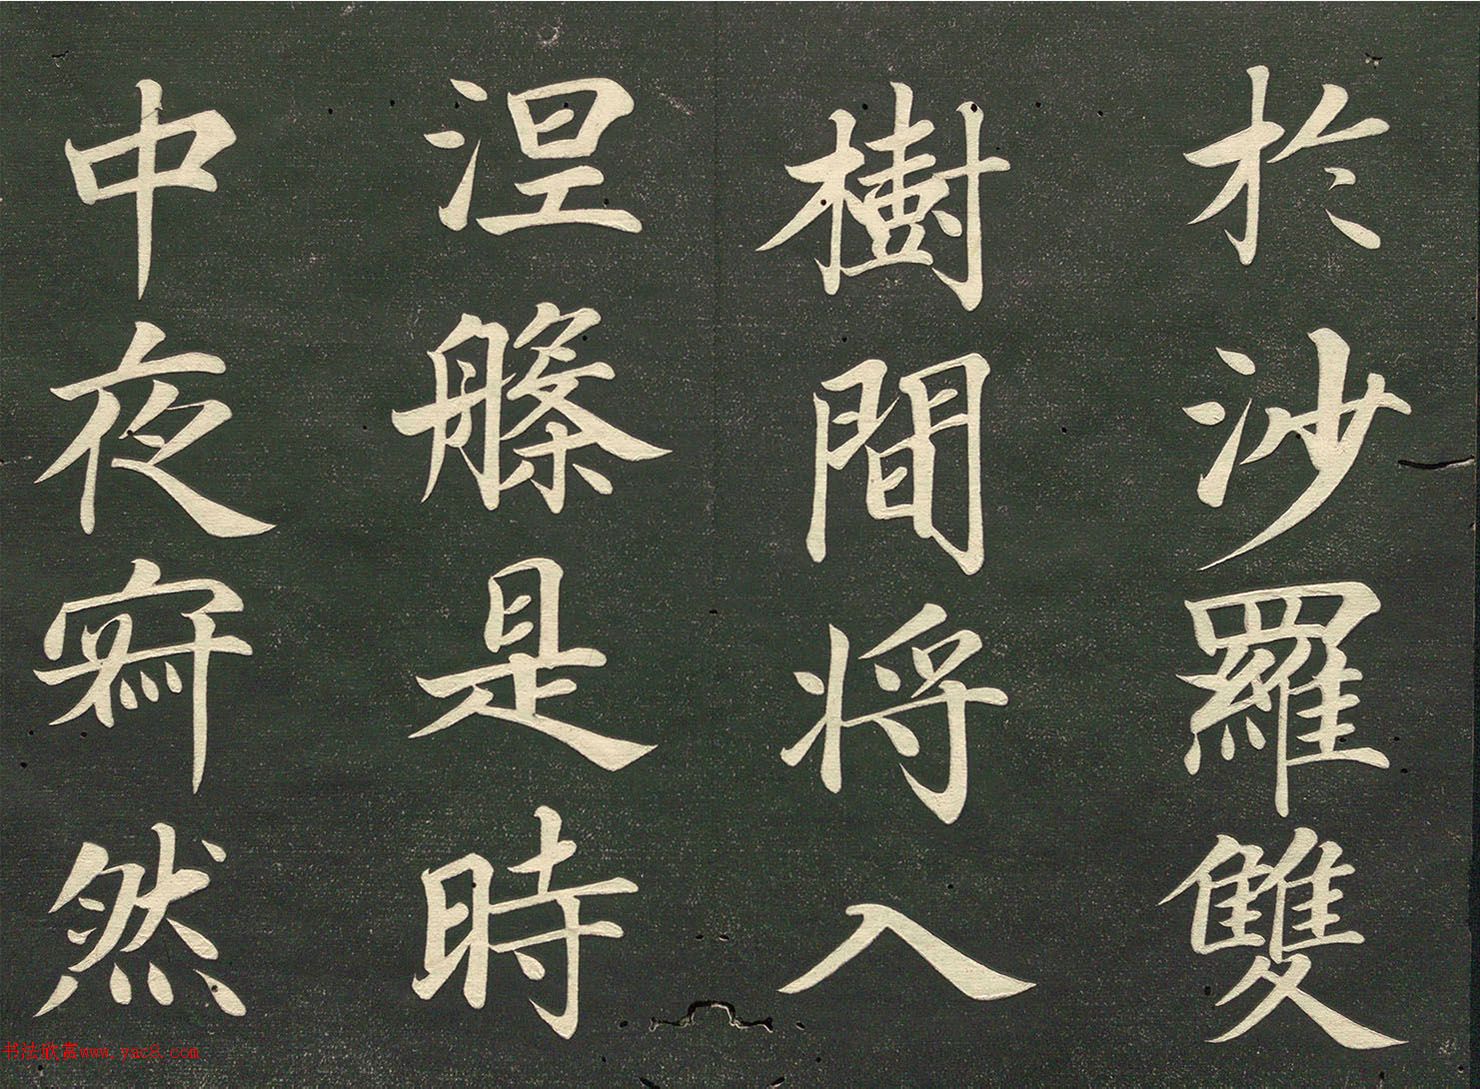 於沙羅雙
樹間將入
涅槃是時
中夜寂然
书法欣赏www.yac8.com